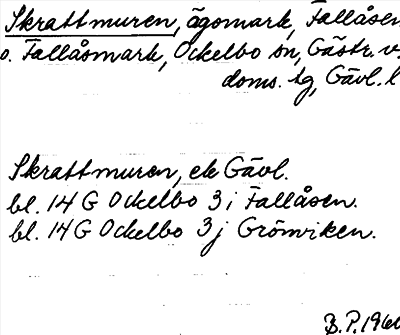 Skrattmuren, ägomark, Fallåsen
o. Fallåsmark, Ockelbo sn, Gästr. v.
doms. tg, Gävl. l
Skrattmuren, ek Gävl.
bl. 14 G Ockelbo 3 i Fallåsen.
bl. 14 G Ockelbo 3 j Grönviken.
B.P. 1960